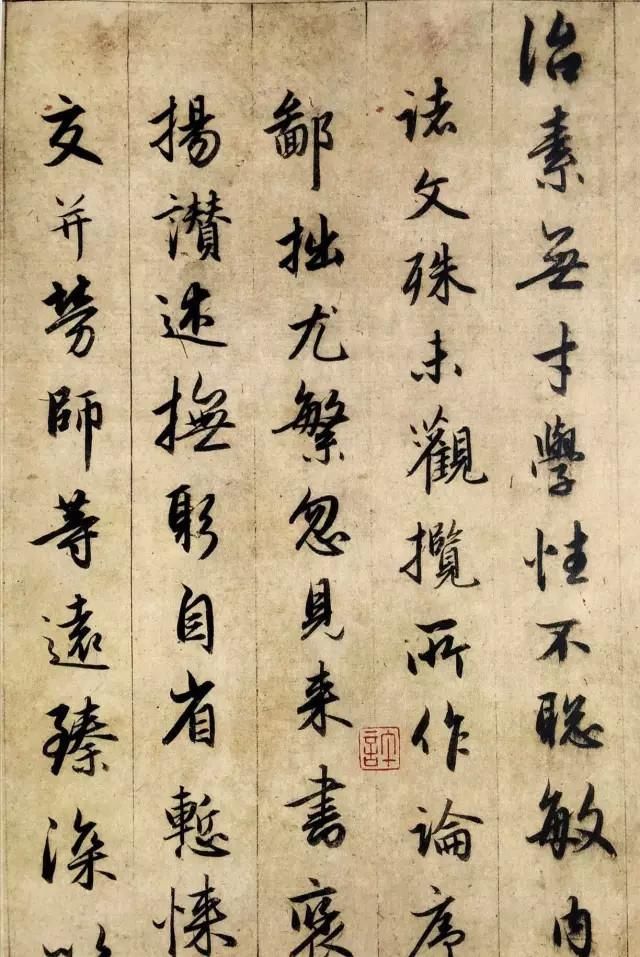 治素無才學性不聡敏内
諸文殊未觀攬所作論序
鄙拙尤繁忽見来書褒
揚讃述撫躬自省慙悚
交并勞師等遠臻深
許